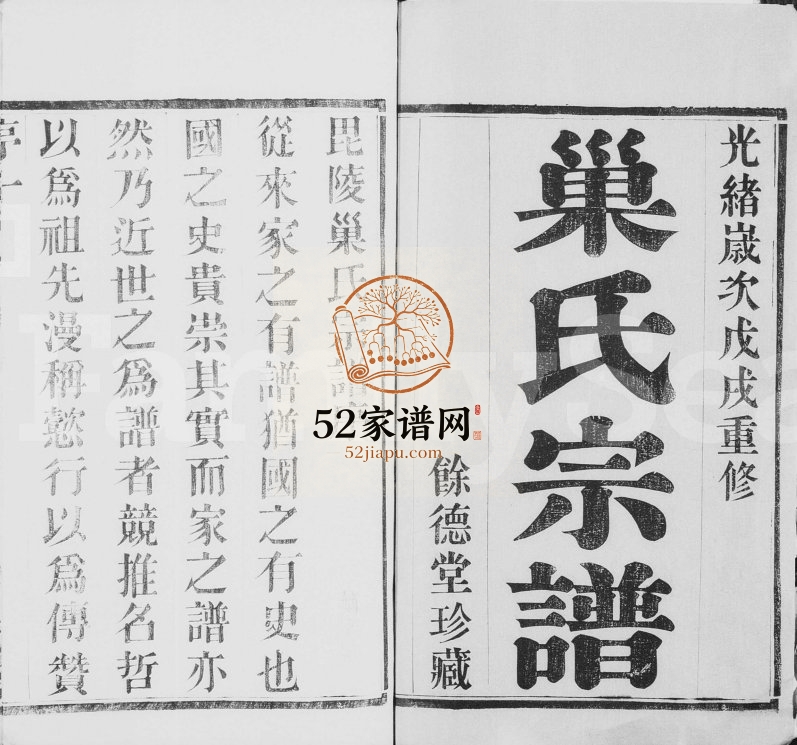 光緒歲次戊戌重修
巢氏宗譜
餘德堂珍藏
毘陵巢氏宗譜
從來家之有譜猶國之有史也
國之史貴崇其實而家之譜亦
然乃近世之為譜者競推名哲
以為祖先漫稱懿行以為傳贊
52家谱网
52jiapu.com